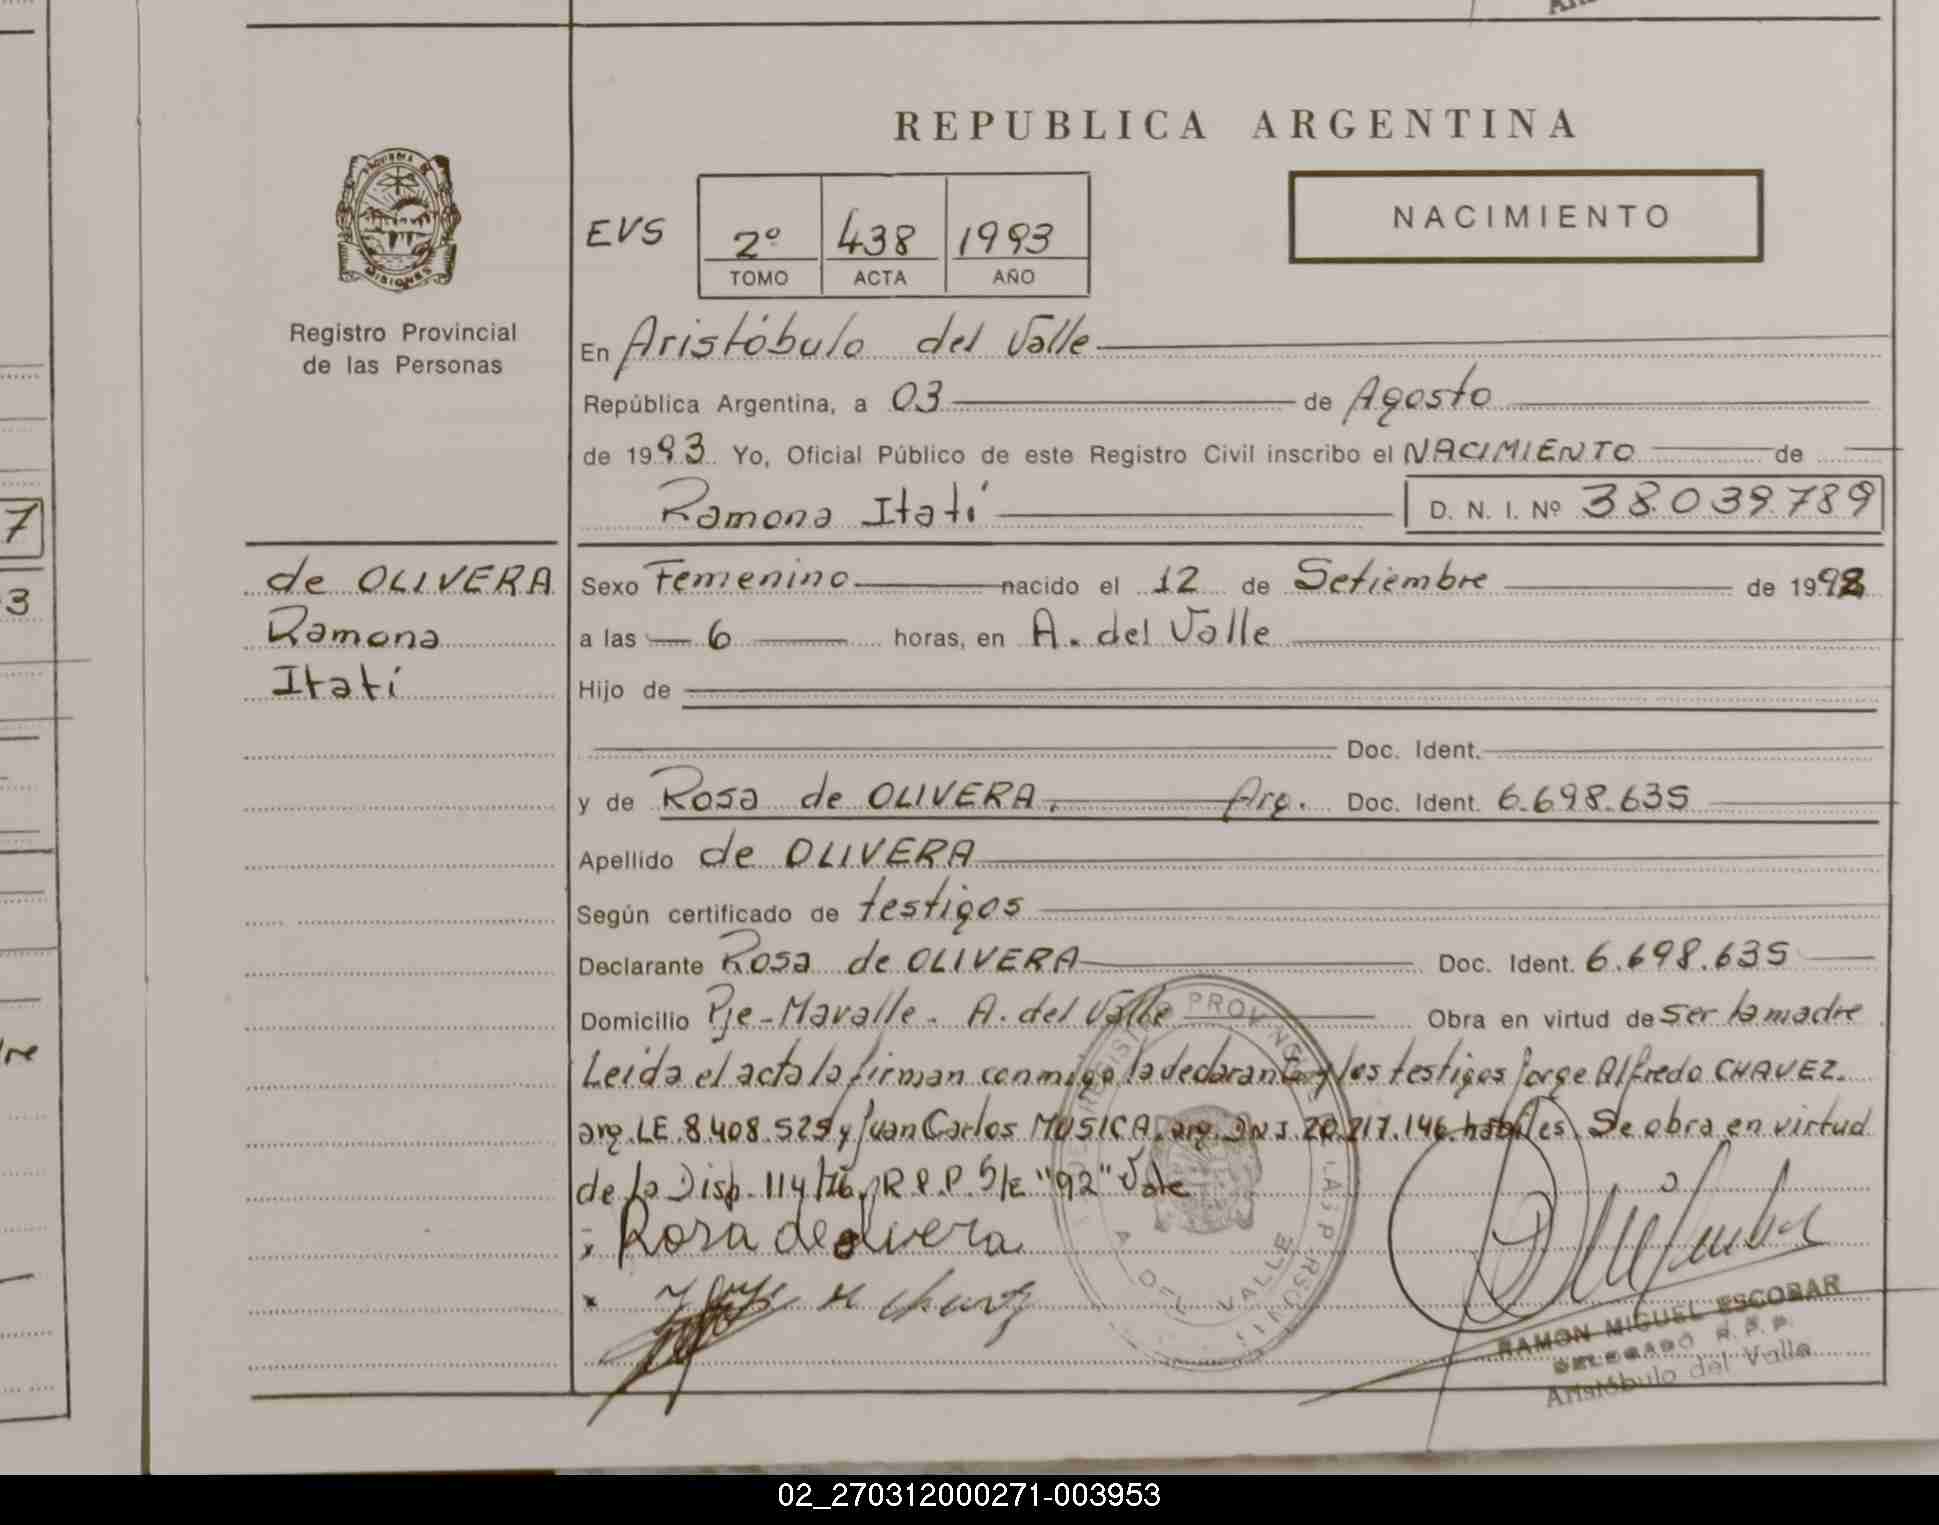 REPUBLICA ARGENTINA
NACIMIENTO
EVS
2º 438 1993
TOMO ACTA AÑO
MISIONES
Registro Provincial
de las Personas
En Aristóbulo del Valle
República Argentina, a 03 de Agosto
de 1993 Yo, Oficial Público de este Registro Civil inscribo el NACIMIENTO de
Ramona Itatí D. N. I. Nº 38.039.789
de OLIVERA
Ramona
Itatí
Sexo Femenino nacido el 12 de Setiembre de 1992
a las 6 horas, en A. del Valle
Hijo de
Doc. Ident.
y de Rosa de OLIVERA. Arg. Doc. Ident. 6.698.635
Apellido de OLIVERA
Según certificado de testigos
Declarante Rosa de OLIVERA Doc. Ident. 6.698.635
Domicilio Pje-Mavalle. A. del Valle Obra en virtud de ser la madre
Leida el acta la firman conmigo la declarante y los testigos Jorge Alfredo CHAVEZ.
arg. LE 8.408.525 y Juan Carlos MUSICA. arg. DNI 20.217.146. habiles. Se obra en virtud
de la Disp. 114/76. R.P.P. S/E "92" Vale
Rosa de olivera
RAMON MIGUEL ESCOBAR
DELEGADO R. P. P.
Aristóbulo del Valle
A. DEL VALLE
7
3
02_270312000271-003953